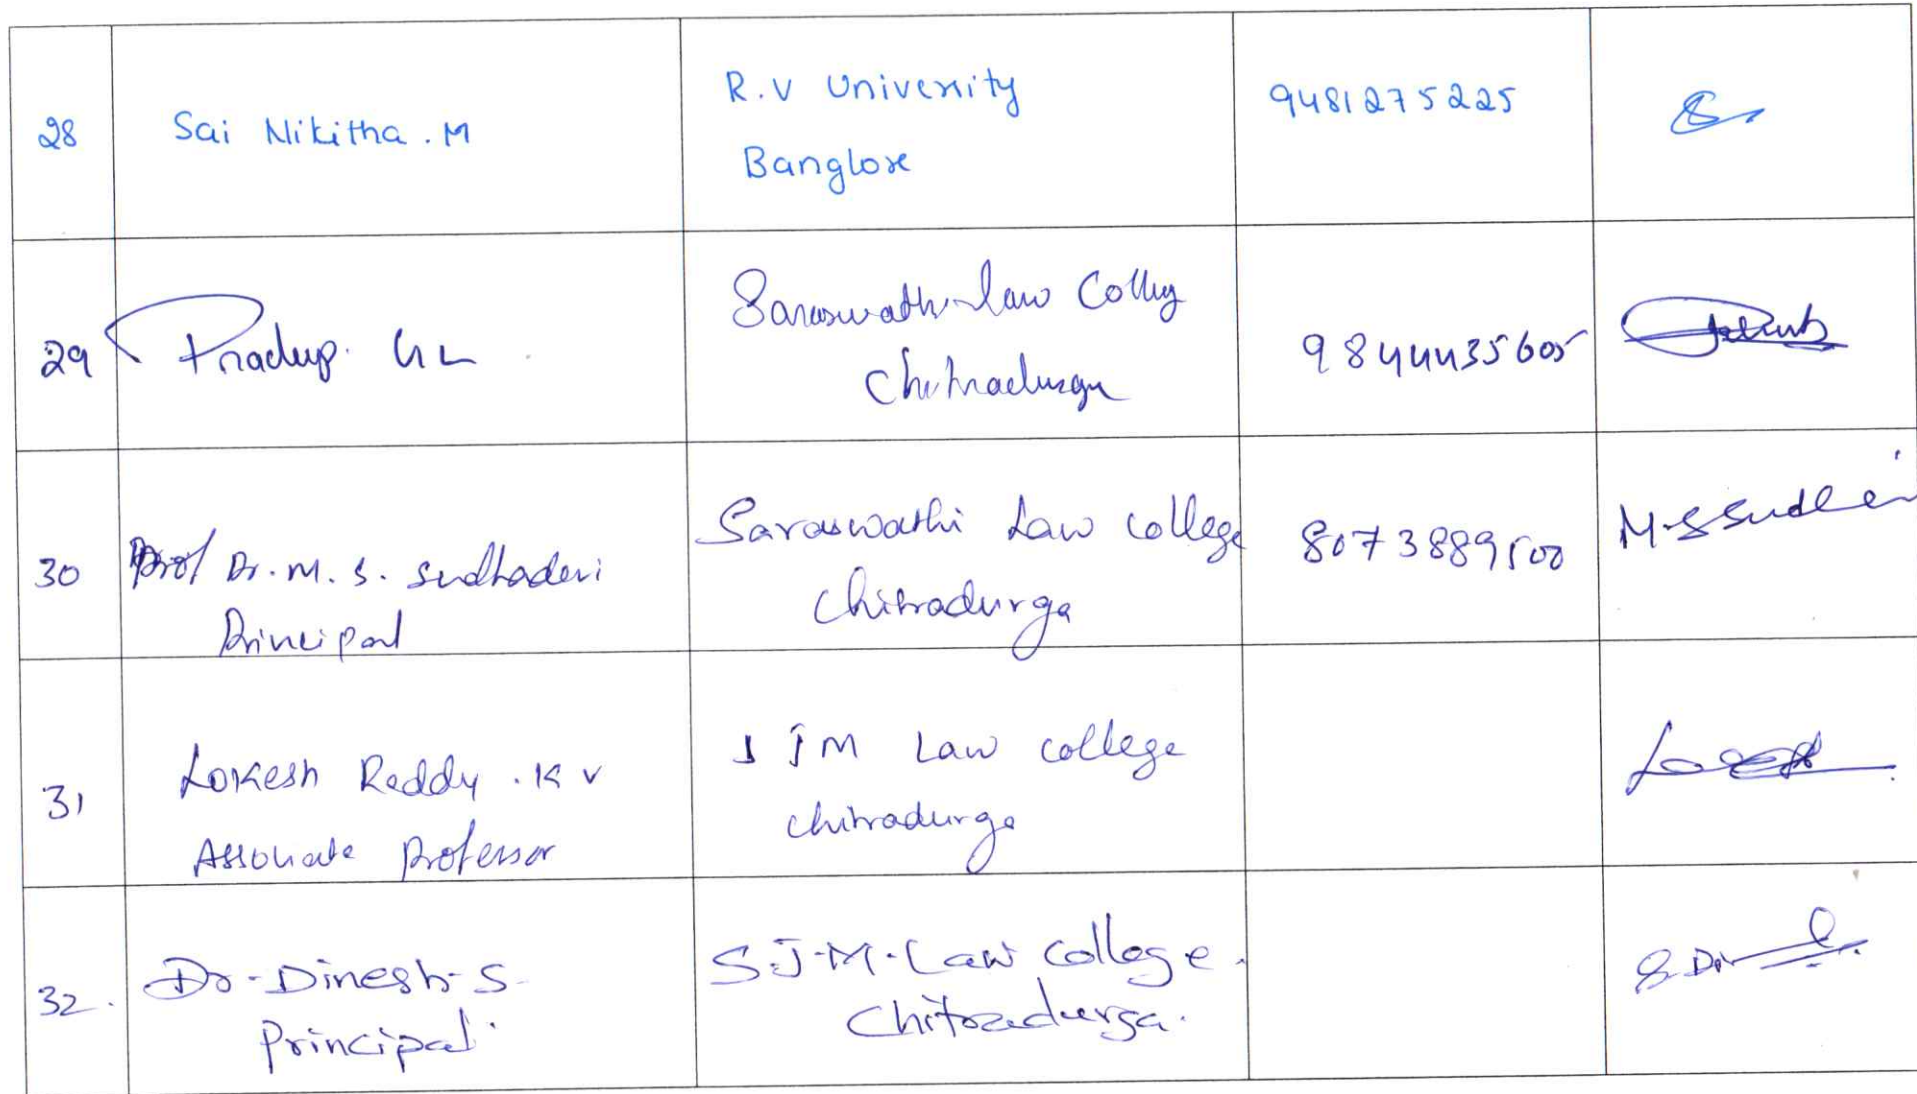 28
Sai Nikitha . M
R.V University
Banglore
9481275225
29
Pradeep. G L
Saraswathi Law College
Chitradurga
9844435605
30
Prof Dr. M. S. Sudhadevi
Principal
Saraswathi Law college
Chitradurga
8073889500
M.S Sudh
31
Lokesh Reddy . K V
Associate Professor
S J M Law college
Chitradurga
32.
Dr. Dinesh. S.
Principal.
S.J.M. Law College.
Chitradurga.